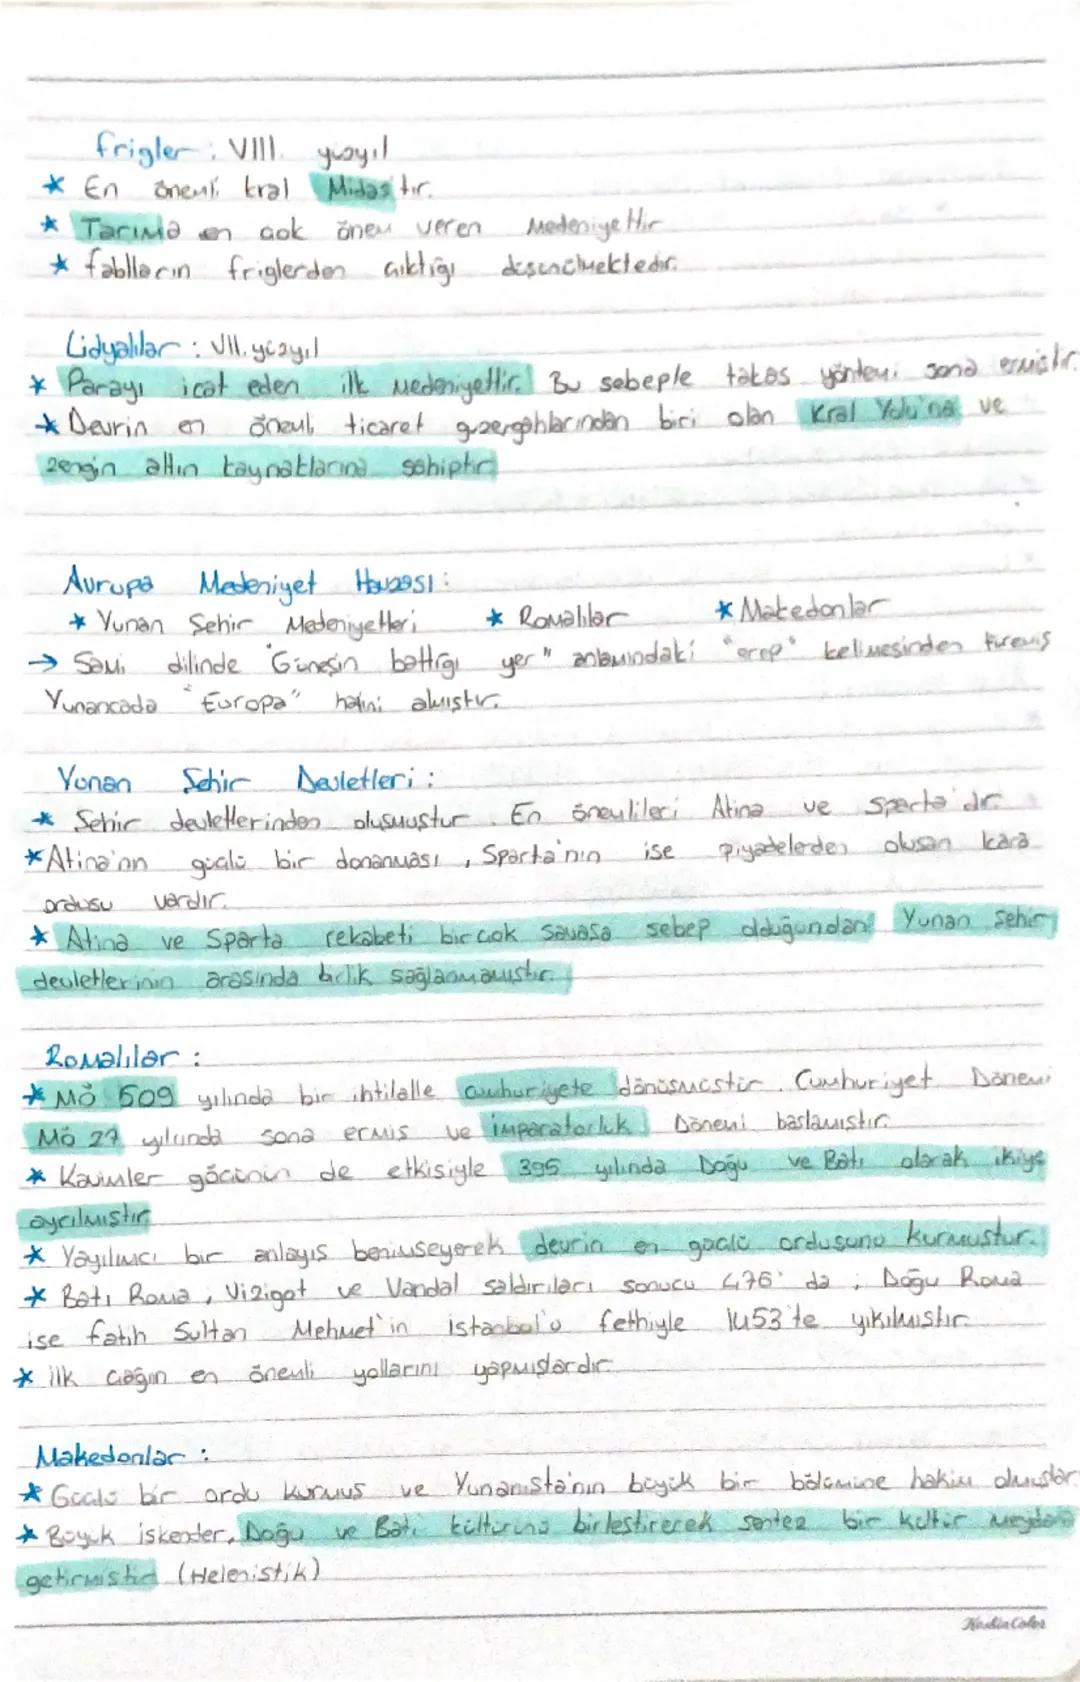 Frigler : VIII. yüzyıl
* En önemli kral Midas'tır.
* Tarıma en çok önem veren Medeniyettir
* fablların friglerden çıktığı düşünülmektedir.
Lidyalılar : VII. yüzyıl
* Parayı icat eden ilk medeniyettir. Bu sebeple takas yöntemi sona ermiştir.
* Devrin en önemli ticaret güzergahlarından biri olan Kral Yolu'na ve
zengin altın kaynaklarına sahiptir
Avrupa Medeniyet Havzası :
* Yunan Şehir Medeniyetleri * Romalılar * Makedonlar
→ Sami dilinde "Güneşin battığı yer" anlamındaki "erep" kelimesinden türemiş
Yunancada "Europa" halini almıştır.
Yunan Şehir Devletleri :
* Şehir devletlerinden oluşmuştur. En önemlileri Atina ve Sparta'dır.
* Atina'nın güçlü bir donanması, Sparta'nın ise piyadelerden oluşan kara
ordusu vardır.
* Atina ve Sparta rekabeti birçok savaşa sebep olduğundan Yunan şehir
devletlerinin arasında birlik sağlanmamıştır.
Romalılar :
* MÖ 509 yılında bir ihtilalle cumhuriyete dönüşmüştür. Cumhuriyet Dönemi
MÖ 27 yılında sona ermiş ve imparatorluk Dönemi başlamıştır.
* Kavimler göçünün de etkisiyle 395 yılında Doğu ve Batı olarak ikiye
ayrılmıştır
* Yayılmcı bir anlayış benimseyerek devrin en güçlü ordusunu kurmuştur.
* Batı Roma, Vizigot ve Vandal saldırıları sonucu 476'da ; Doğu Roma
ise fatih Sultan Mehmet'in İstanbul'u fethiyle 1453'te yıkılmıştır.
* ilk çağın en önemli yollarını yapmışlardır.
Makedonlar :
* Güçlü bir ordu kurmuş ve Yunanista'nın büyük bir bölümüne hakim olmuşlar.
* Büyük iskender, Doğu ve Batı kültürünü birleştirerek sentez bir kültür meydana
getirmiştir (Helenistik)